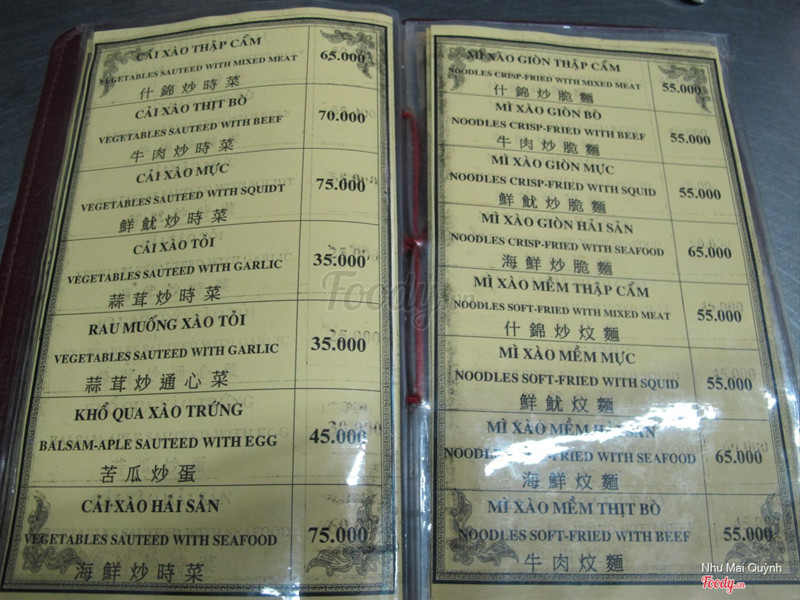 CẢI XÀO THẬP CẨM
VEGETABLES SAUTEED WITH MIXED MEAT
65.000
什錦炒時菜
CẢI XÀO THỊT BÒ
VEGETABLES SAUTEED WITH BEEF
70.000
牛肉炒時菜
CẢI XÀO MỰC
VEGETABLES SAUTEED WITH SQUIDT
75.000
鮮魷炒時菜
CẢI XÀO TỎI
VEGETABLES SAUTEED WITH GARLIC
35.000
蒜茸炒時菜
RAU MUỐNG XÀO TỎI
VEGETABLES SAUTEED WITH GARLIC
35.000
蒜茸炒通心菜
KHỔ QUA XÀO TRỨNG
BALSAM-APLE SAUTEED WITH EGG
45.000
苦瓜炒蛋
CẢI XÀO HẢI SẢN
VEGETABLES SAUTEED WITH SEAFOOD
75.000
海鮮炒時菜
MÌ XÀO GIÒN THẬP CẨM
NOODLES CRISP-FRIED WITH MIXED MEAT
55.000
什錦炒脆麵
MÌ XÀO GIÒN BÒ
NOODLES CRISP-FRIED WITH BEEF
55.000
牛肉炒脆麵
MÌ XÀO GIÒN MỰC
NOODLES CRISP-FRIED WITH SQUID
55.000
鮮魷炒脆麵
MÌ XÀO GIÒN HẢI SẢN
NOODLES CRISP-FRIED WITH SEAFOOD
65.000
海鮮炒脆麵
MÌ XÀO MỀM THẬP CẨM
NOODLES SOFT-FRIED WITH MIXED MEAT
55.000
什錦炒炆麵
MÌ XÀO MỀM MỰC
NOODLES SOFT-FRIED WITH SQUID
55.000
鮮魷炆麵
MÌ XÀO MỀM HẢI SẢN
NOODLES SOFT-FRIED WITH SEAFOOD
65.000
海鮮炆麵
MÌ XÀO MỀM THỊT BÒ
NOODLES SOFT-FRIED WITH BEEF
55.000
牛肉炆麵
Foody.vn
Như Mai Quỳnh
Foody.vn